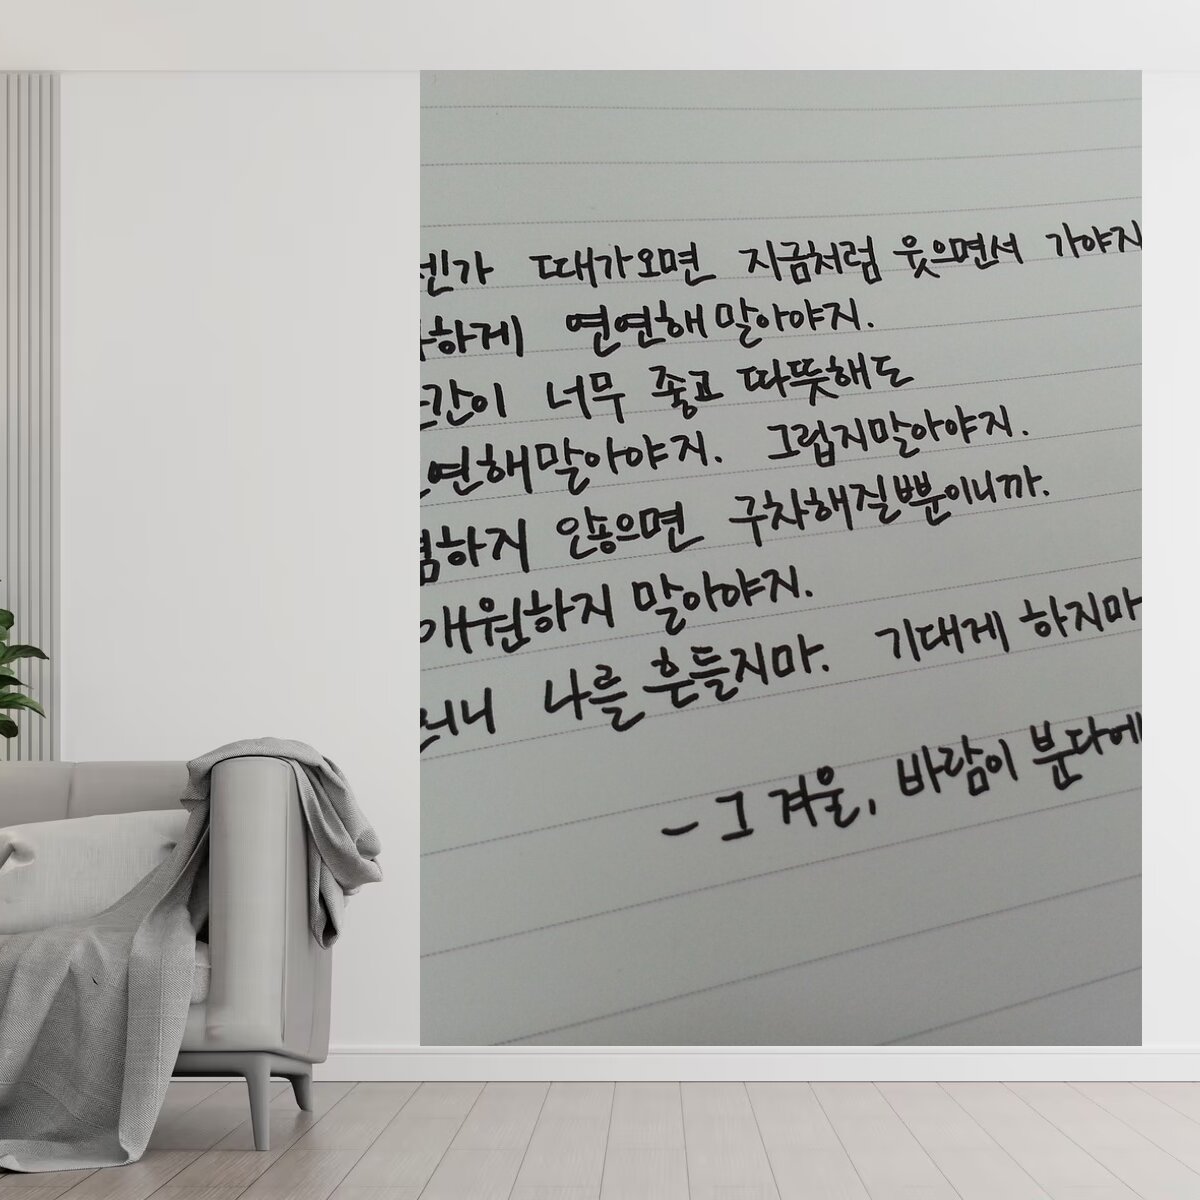 때가오면 지금처럼 웃으면서 가야지
연연해말아야지.
너무 좋고 따뜻해도
연해말아야지. 그립지말아야지.
하지 않으면 구차해질뿐이니까.
애원하지 말아야지.
나를 흔들지마. 기대게 하지마
- 그 겨울, 바람이 분다에